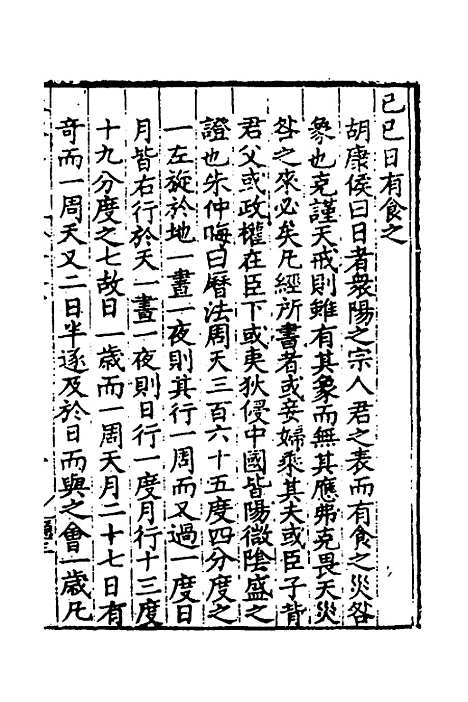 己巳日有食之
胡康侯曰日者衆陽之宗人君之表而有食之災咎
象也克謹天戒則雖有其象而無其應弗克畏天災
咎之來必矣凡經所書者或妾婦乘其夫或臣子背
君父或政權在臣下或夷狄侵中國皆陽微隂盛之
證也朱仲晦曰曆法周天三百六十五度四分度之
一左旋於地一晝一夜則其行一周而又過一度日
月皆右行於天一晝一夜則日行一度月行十三度
十九分度之七故日一歲而一周天月二十七日有
奇而一周天又二日半逐及於日而與之會一歲凡